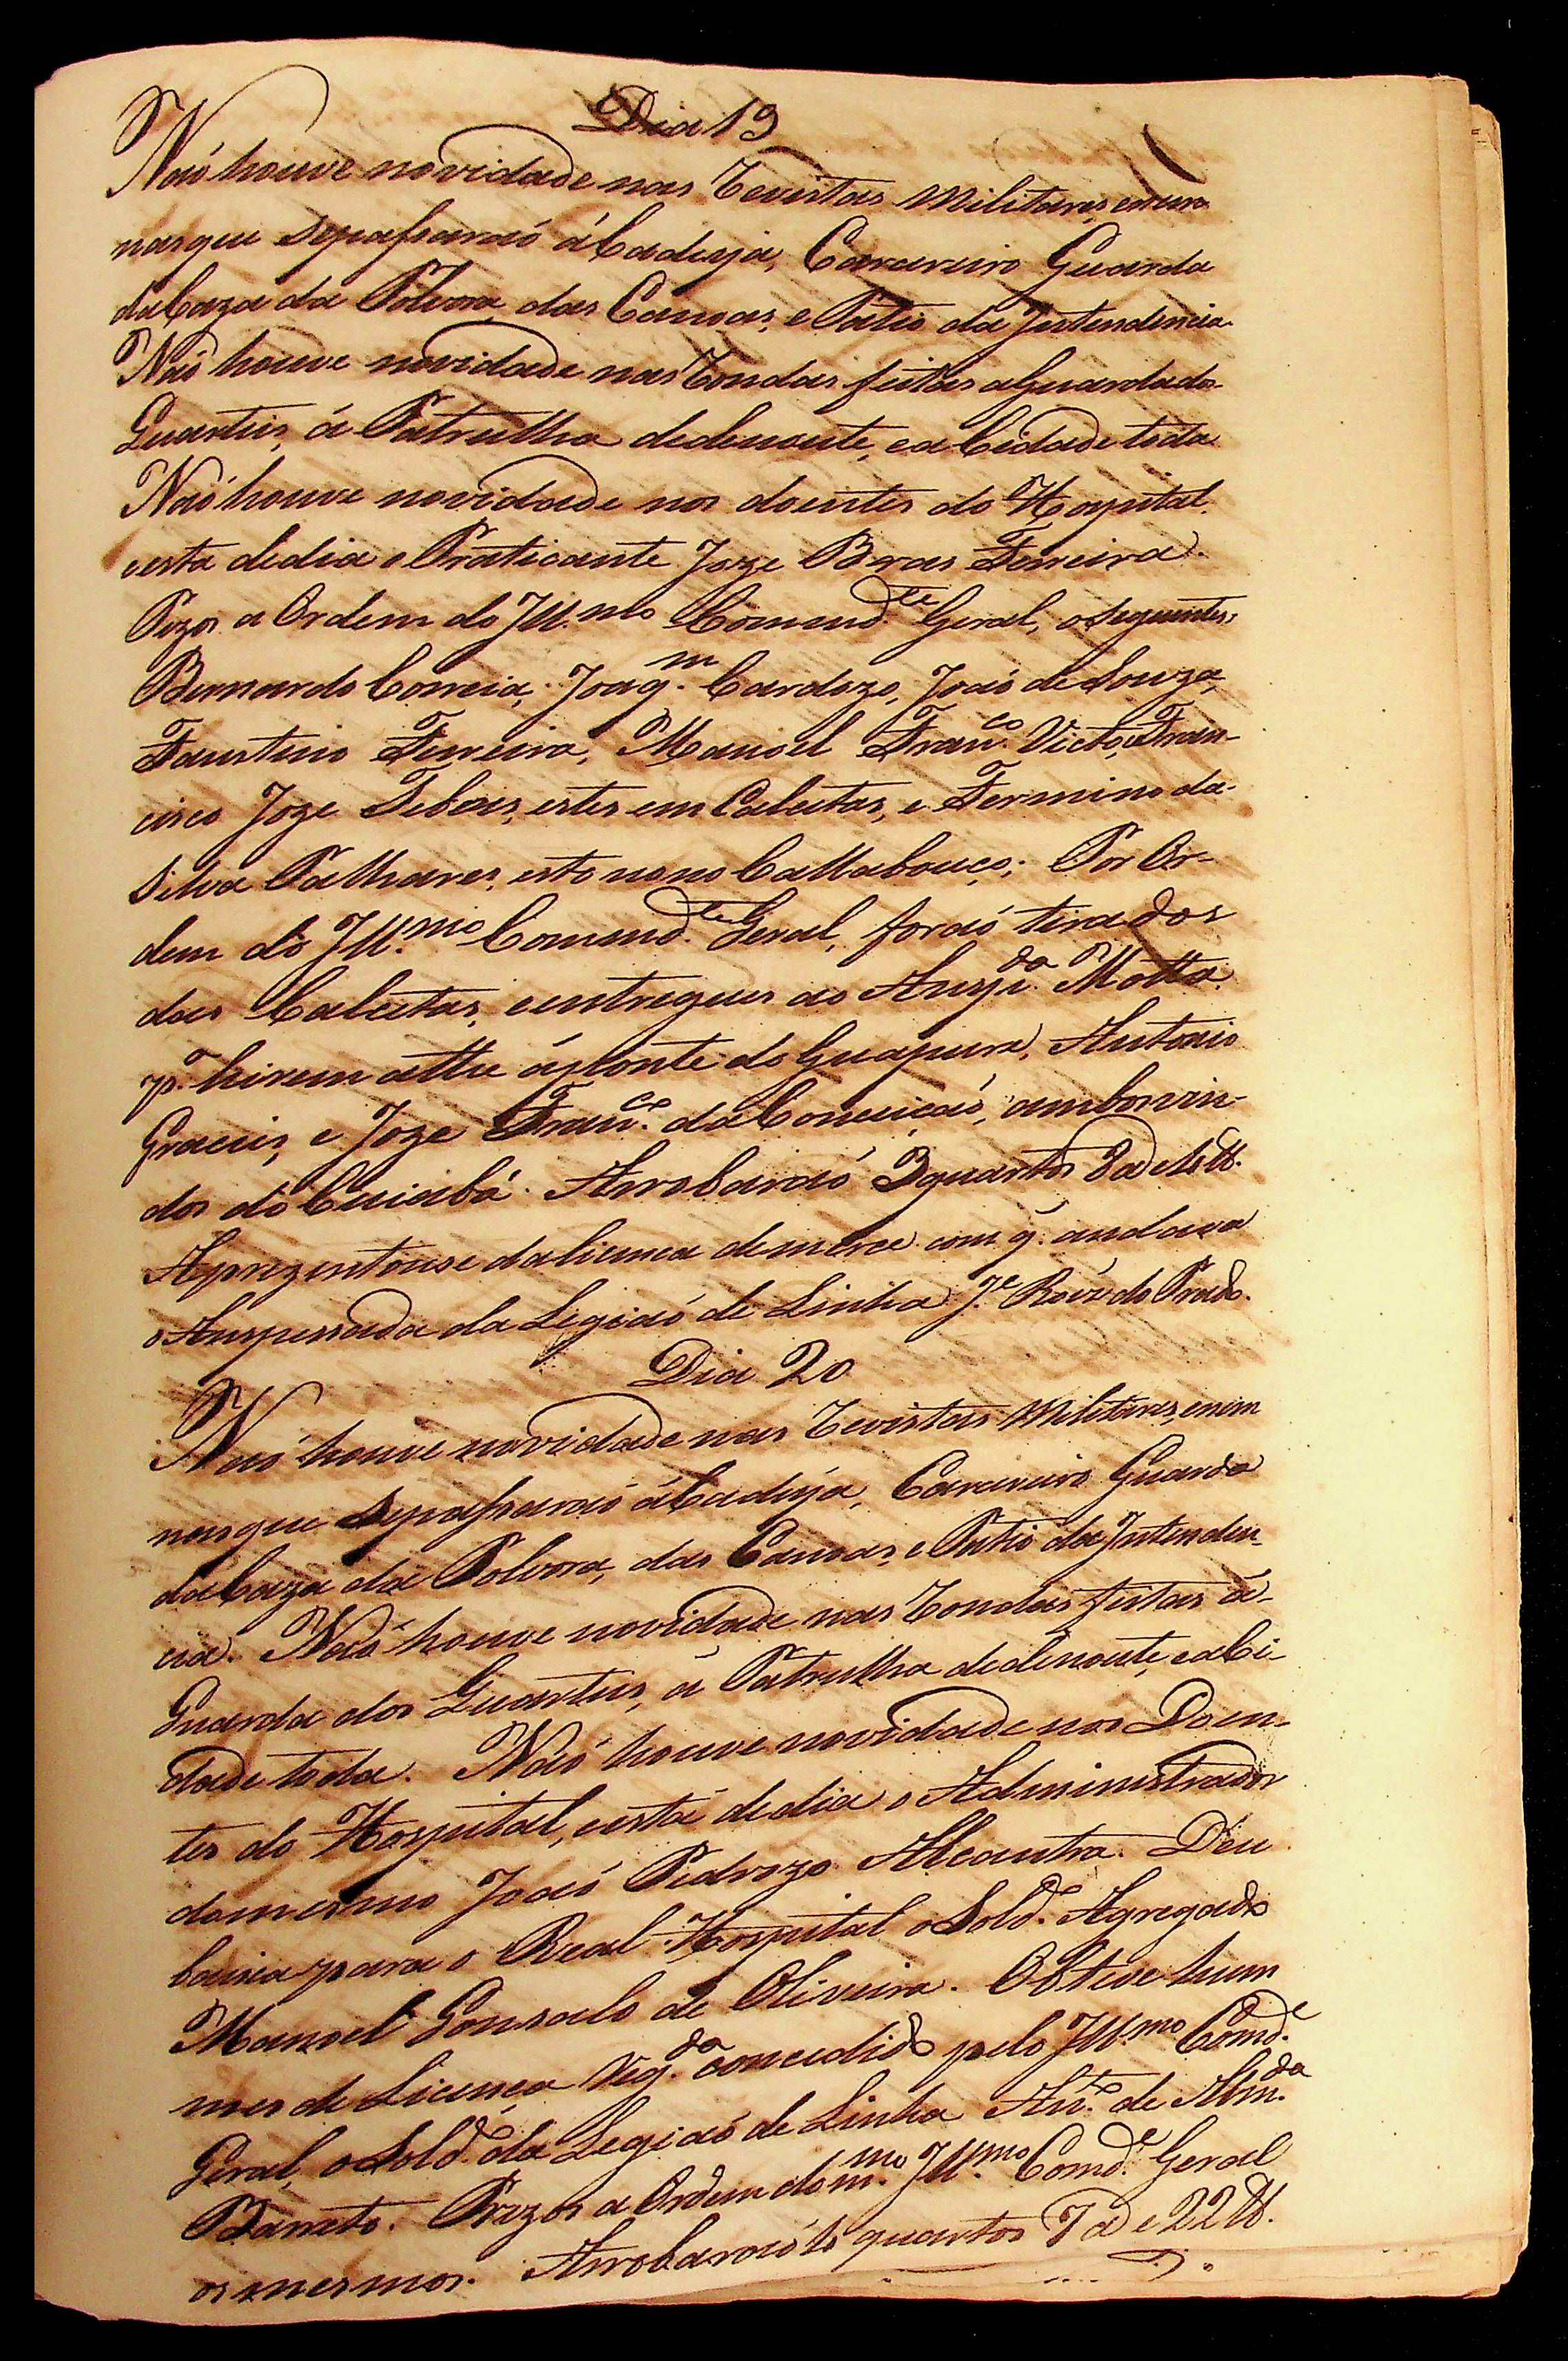 Dia 19
Naõ houve novidade nas Revistas Militares, enem
nas que sepassaraõ á Cadeya, Carcereiro Guarda
da Caza da Polvora, das Canoas, e Patio da Intendencia.
Naõ houve novidade nas Rondas feitas a Guarda dos
Quarteis, á Patrulha dedenoute, e a Cidade toda
Naõ houve novidade nos doentes do Hospital,
e esta dedia o Praticante Joze Bras Ferreira.
Prezos a Ordem do Ill.mo Commd.te Geral, os seguintes,
Bernardo Correia, Joaq.m Cardozo, Joaõ de Souza,
Faustino Ferreira, Manoel Fran.co Victo, Fran-
cisco Joze Seboas, estes em Calcetas, e Fermino da
Silva Palhares, este no no Callabouço; Por Or-
dem do Ill.mo Commd.te Geral, foraõ tirados
das Calcetas, e entregues ao Anspe.da Motta
p.a hirem athe á ponte do Guapura, Antonio
Gracia, e Joze Fran.co da Conceiçaõ, ambos vin-
dos do Cuiabá. Arrobaraõ 3 quartos
Aprezentouse da licença de merce com q. andava
o Anspessada da Legiaõ de Linha J.e Roiz do Prado.
Dia 20
Naõ houve novidade nas Revistas Militares, enem
nas que sepassaraõ á Cadeya, Carcereiro Guarda
da Caza da Polvora, das Canoas, e Patio da Intenden-
cia. Naõ houve novidade nas Rondas feitas á
Guarda dos Quarteis, á Patrulha dedenoute, e a Ci-
dade toda. Naõ houve novidade nos Doen-
tes do Hospital, e está dedia o Administrador
do mesmo Joaõ Pedrozo Alcantra. Deu
baixa para o Real Hospital o Sold.o Agregado
Manoel Gonsalo de Oliveira. Obteve hum
mes de Licença Reg.da concedido pelo Ill.mo Comd.e
Geral, o Sold.o da Legiaõ de Linha An.to de Alm.da
Barreto. Prezos a Ordem do m.mo Ill.mo Comd.e Geral
os mesmos. Arrobaraõ quartos 7 @ e 22 lb.